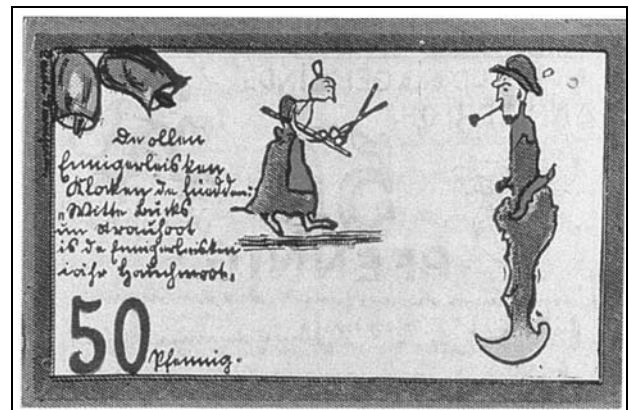 De ollen
Ennigerleisken
Klocken de lüedden:
„Witte Bucks
un Strauhoot
is de Ennigerleisken
iähr Hauchmoot.
50 Pfennig.